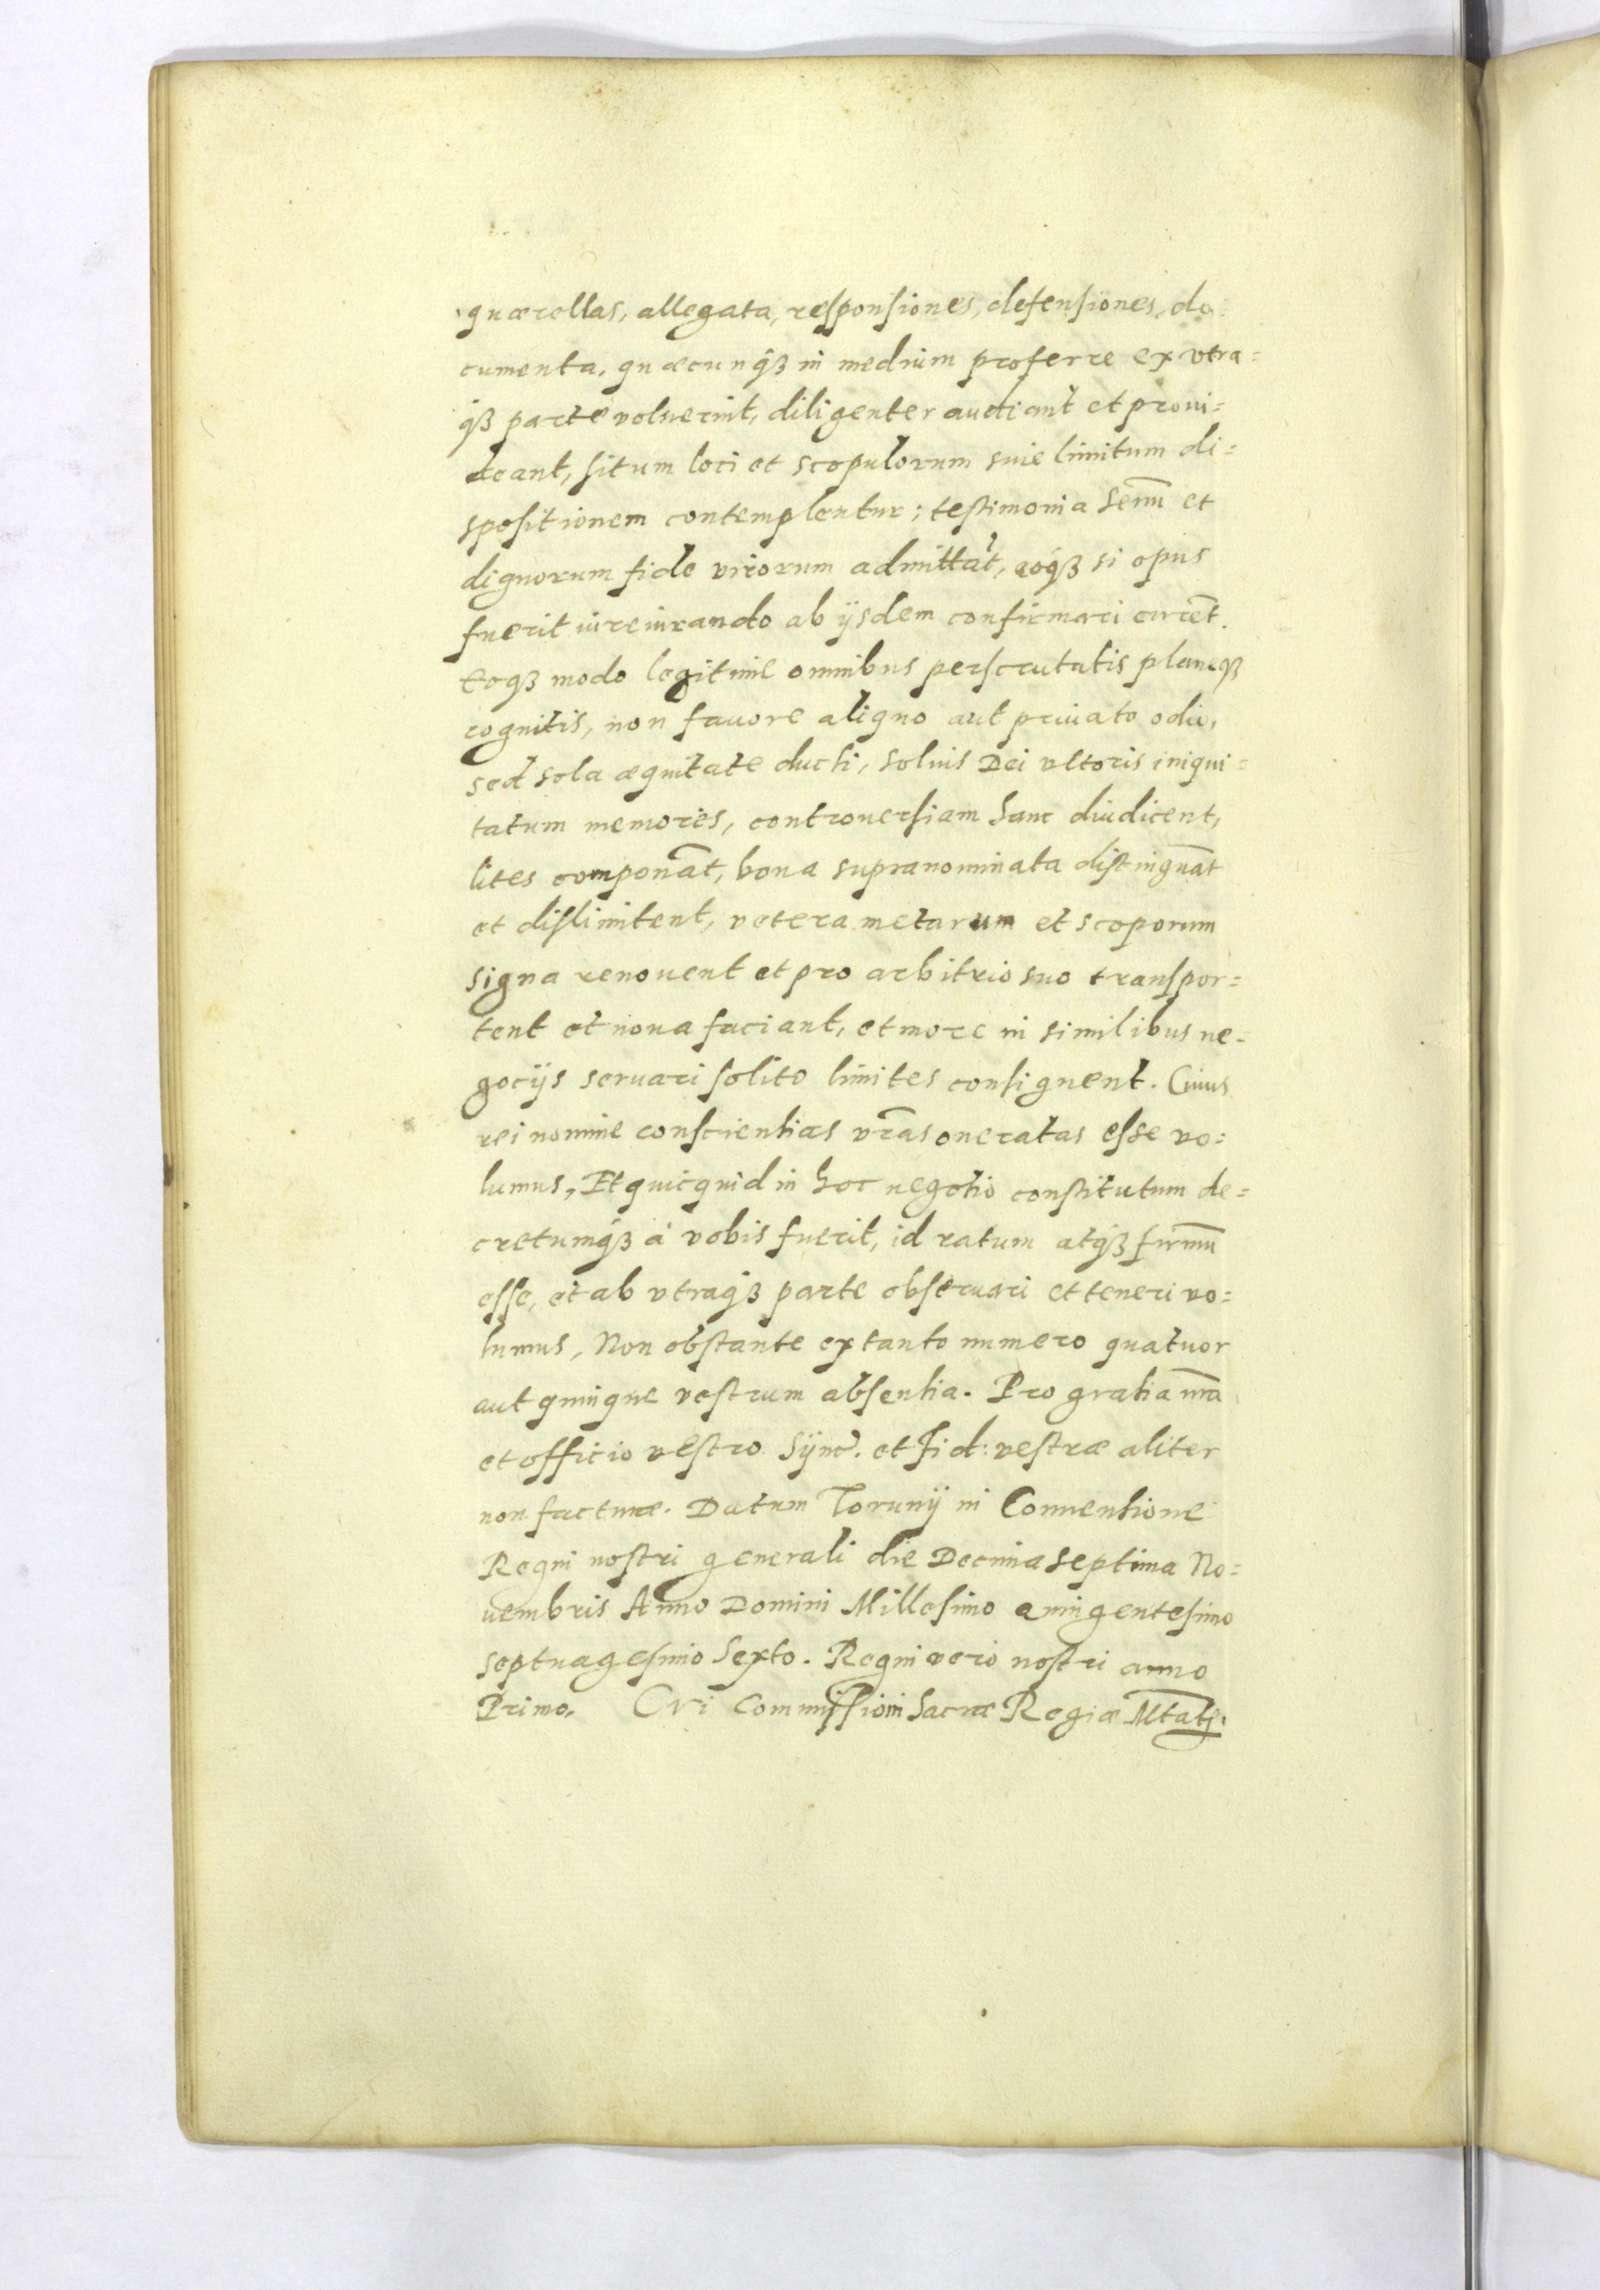 quærellas, allegata, responsiones, defensiones, do-
cumenta, quæcunqꝫ in medium proferre ex vtra=
qꝫ parte voluerint, diligenter audiant et proui=
deant, situm loci et scopulorum siue limitum di=
spositionem contemplentur; testimonia Senũ et
dignorum fide virorum admittãt, eaqꝫ si opus
fuerit iureiurando ab ijsdem confirmari curẽt.
Eoqꝫ modo legitime omnibus perscrutatis planeqꝫ
cognitis, non fauore aliquo aut priuato odio,
sed sola æquitate ducti, solius Dei vltoris iniqui=
tatum memores, controuersiam hanc diiudicent,
lites componãt, bona supranominata distinguãt
et dislimitent, vetera metarum et scoporum
signa renouent et pro arbitrio suo transpor=
tent et noua faciant, et more in similibus ne=
gocijs seruari solito limites consignent. Cuius
rei nomine conscientias vr̃as oneratas esse vo=
lumus, Et quicquid in hoc negotio constitutum de=
cretumqꝫ à vobis fuerit, id ratum atqꝫ firmũ
esse, et ab vtraqꝫ parte obseruari et teneri vo=
lumus, Non obstante ex tanto numero quatuor
aut quinque vestrum absentia. Pro gratia nr̃a
et officio vestro Sync. et Fid: vestræ aliter
non facturæ. Datum Torunij in Conuentione
Regni nostri generali die Decima septima No=
uembris Anno Domini Millesimo quingentesimo
septuagesimo Sexto. Regni vero nostri anno
Primo. Cvi Commissioni Sacræ Regiæ Mtatis.